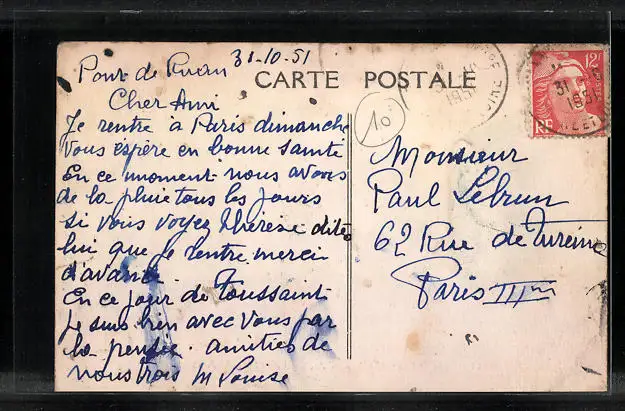 Pont de Ruan 31-10-51
CARTE POSTALE
Cher Ami
Je rentre à Paris dimanche
vous éspère en bonne santé
En ce moment nous avons
de la pluie tous les jours
si vous voyez Thérèse dite
lui que je rentre merci
d'avance.
En ce jour de Toussaint
je suis bien avec vous par
la pensée. amitiés de
nous trois M Louise
10
Monsieur
Paul Lebrun
62 Rue de Turenne
Paris III me
12F
RF
31
1951